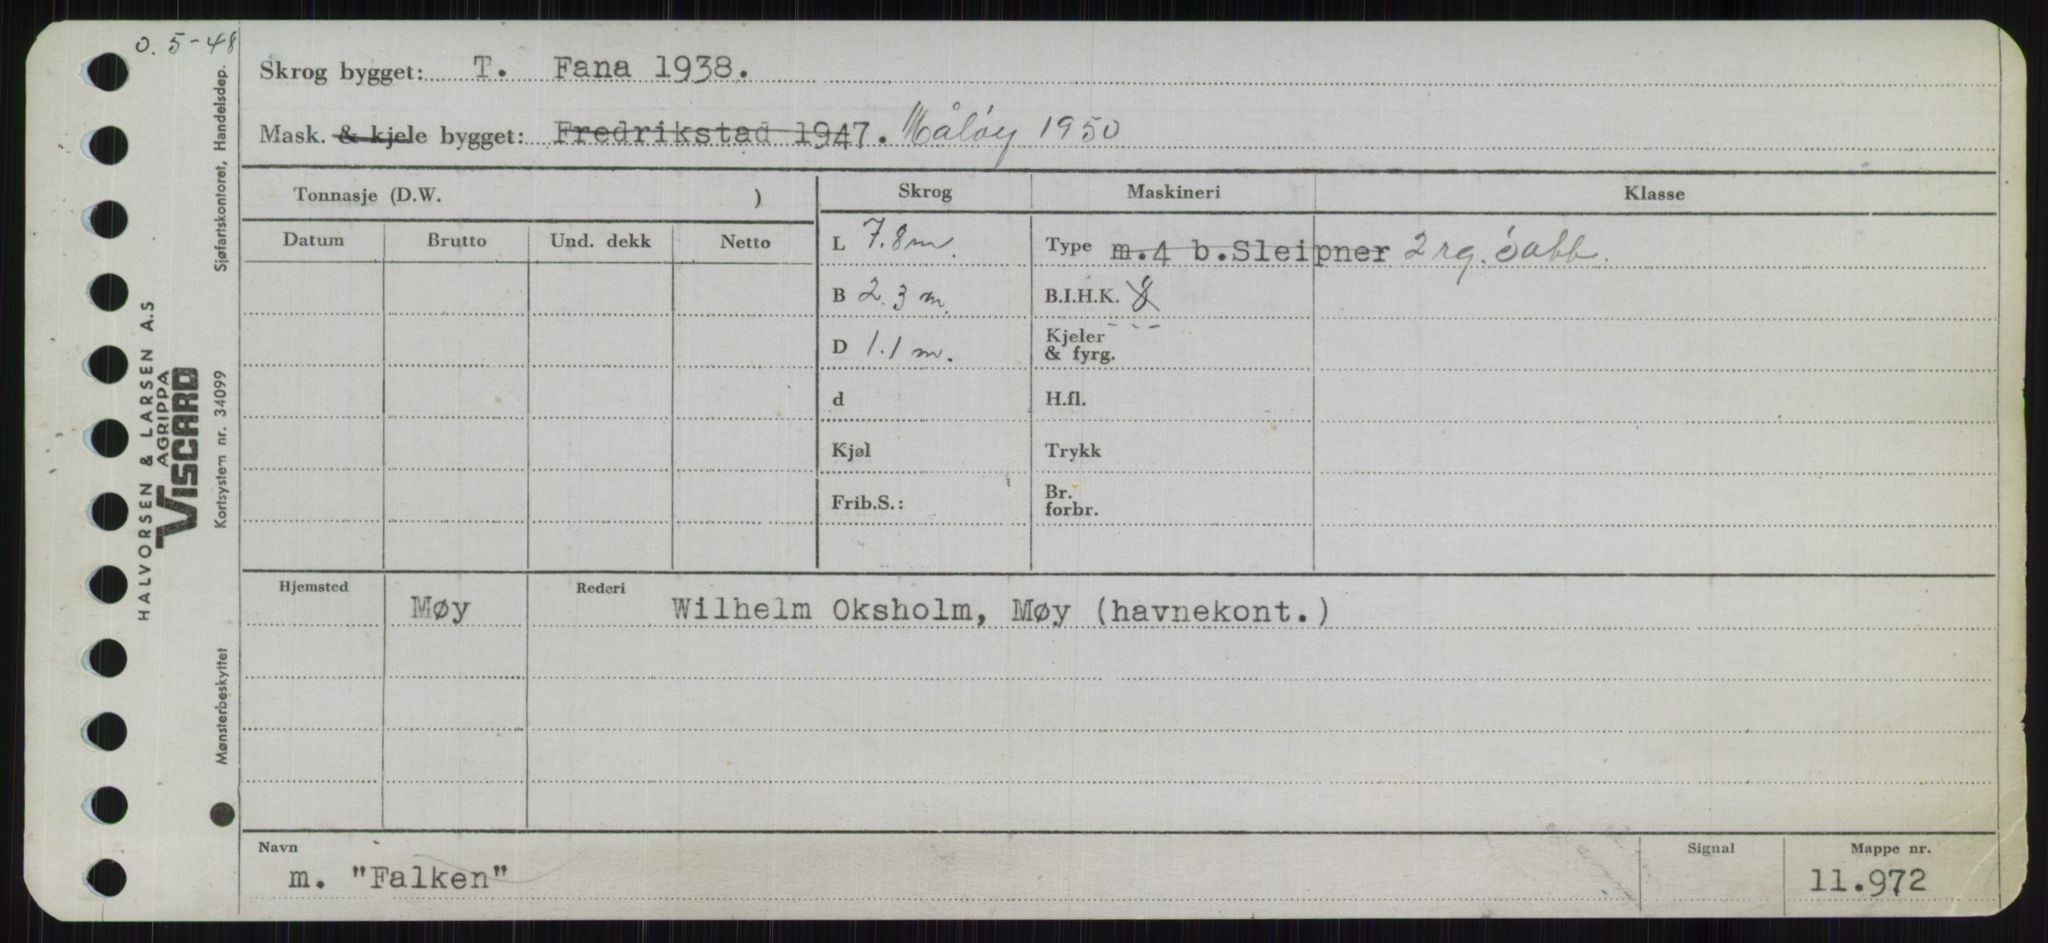 O. 5-48
Skrog bygget: T. Fana 1938.
Mask. & kjele bygget: Fredrikstad 1947. Måløy 1950
Tonnasje (D.W. )
Skrog
Maskineri
Klasse
Datum
Brutto
Und. dekk
Netto
L 7.8 m.
Type m.4 b.Sleipner 2 rg. Sabb.
B 2.3 m.
B.I.H.K. 8
D 1.1 m.
Kjeler
& fyrg.
d
H.fl.
Kjøl
Trykk
Frib.S.:
Br.
forbr.
Hjemsted
Møy
Rederi
Wilhelm Oksholm, Møy (havnekont.)
Navn
m. "Falken"
Signal
Mappe nr.
11.972
HALVORSEN & LARSEN A.S
AGRIPPA
VISCARD
Mønsterbeskyttet
Kortsystem nr. 34099
Sjøfartskontoret, Handelsdep.